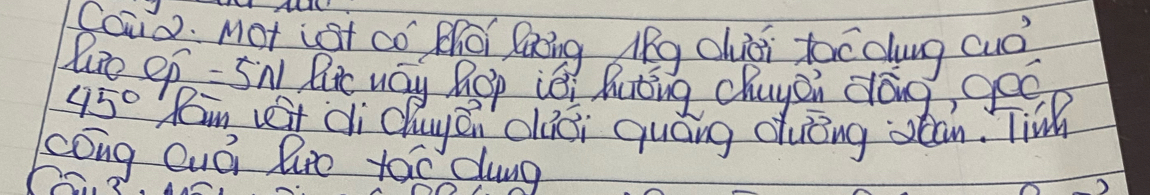 Câu 2. Một vật có khối lượng 1kg dưới tác dụng của
lực ép = 5N lực này hợp với hướng chuyển động, góc
45° làm vật di chuyển dưới quãng đường . Tính
công của lực tác dụng
Câu 3.